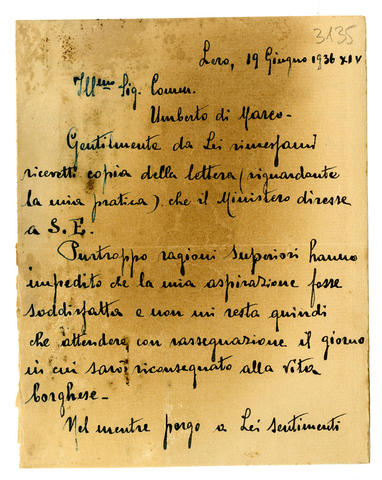 3135
Lero, 19 Giugno 1936 XIV
Ill.mo Sig. Comm.
Umberto di Marco-
Gentilmente da Lei rimessami
ricevetti copia della lettera (riguardante
la mia pratica), che il Ministero diresse
a S.E.
Purtroppo ragioni superiori hanno
impedito che la mia aspirazione fosse
soddisfatta e non mi resta quindi
che attendere con rassegnazione il giorno
in cui sarò riconsegnato alla vita
borghese-
Nel mentre porgo a Lei sentimenti